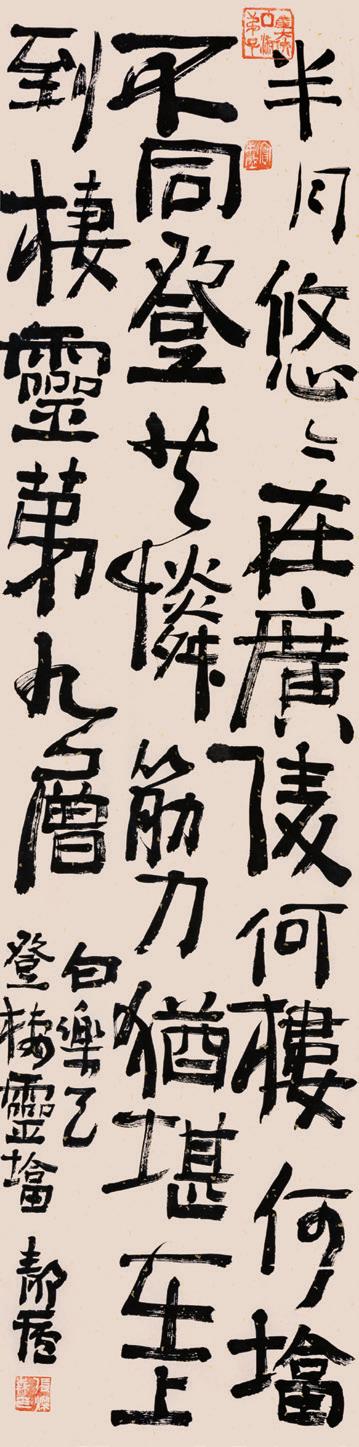 半月悠〻在廣陵何樓何墖
不同登共憐筋力猶堪在上
到棲靈第九層
白樂天
登棲靈墖